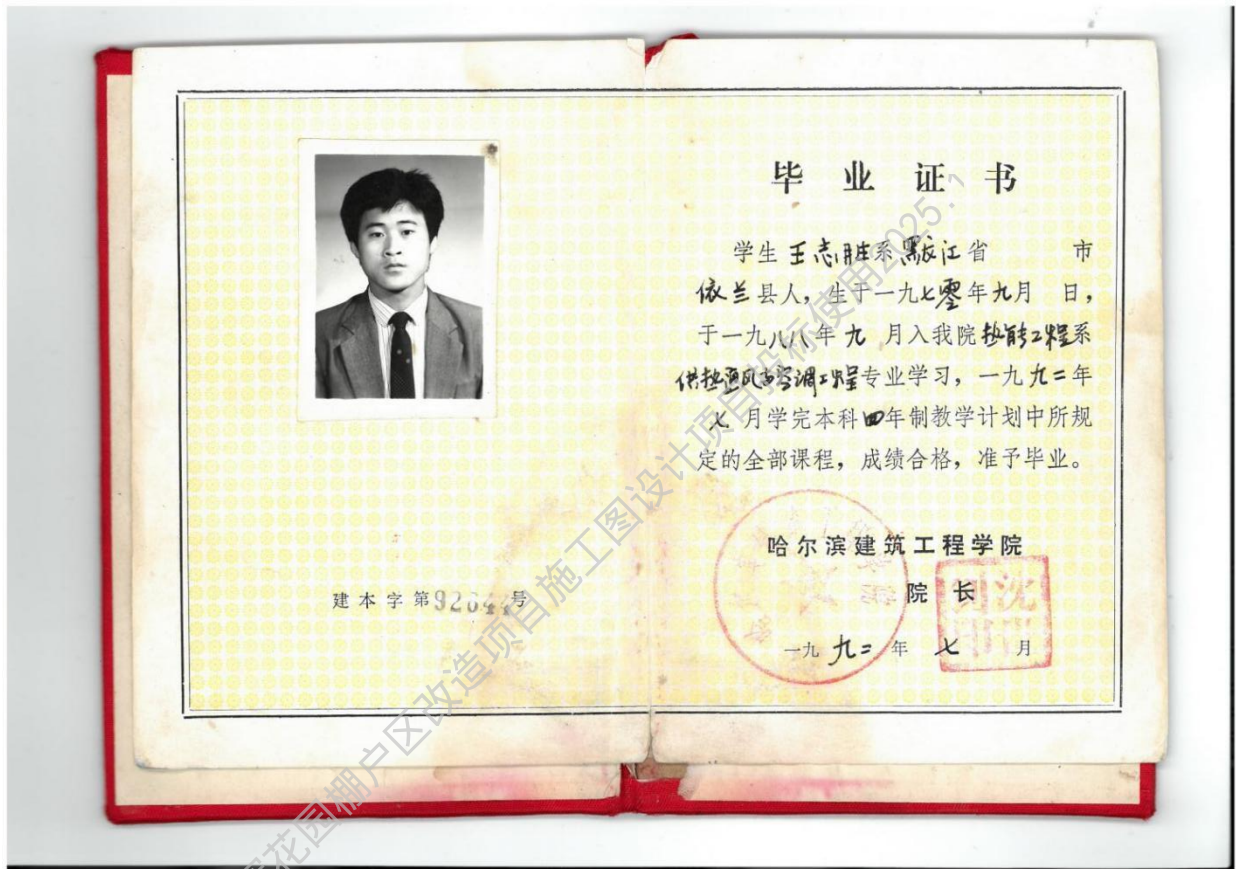 毕业证书
学生王志胜系黑龙江省 市
依兰县人，生于一九七零年九月 日，
于一九八八年九月入我院热能工程系
供热通风与空调工程专业学习，一九九二年
七月学完本科四年制教学计划中所规
定的全部课程，成绩合格，准予毕业。
哈尔滨建筑工程学院
院长
一九九二年七月
建本字第92644号
花园棚户区改造项目施工图设计项目投标使用2025.1